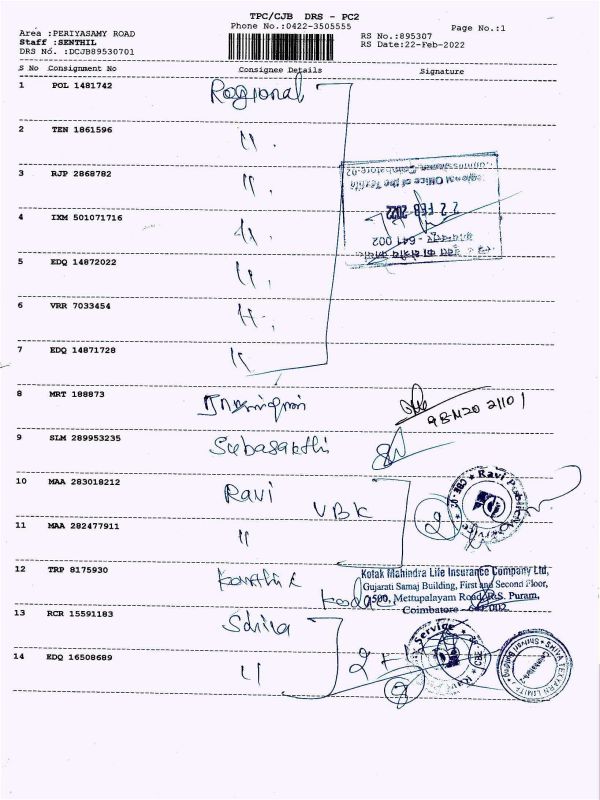 TPC/CJB DRS - PC2
Phone No.:0422-3505555
Page No.:1
Area :PERIYASAMY ROAD
Staff :SENTHIL
DRS No. :DCJB89530701
RS No.:895307
RS Date:22-Feb-2022
S No Consignment No Consignee Details Signature
1 POL 1481742 Regional
2 TEN 1861596 "
3 RJP 2868782 "
4 IXM 501071716 "
5 EDQ 14872022 "
6 VRR 7033454 "
7 EDQ 14871728 "
Regional Office of the Textile
22 FEB 2022
- 641 002
8 MRT 188873
9 SLM 289953235 Subasakthi
10 MAA 283018212 Ravi VBK
11 MAA 282477911 "
2
Ravi
12 TRP 8175930
Kotak Mahindra Life Insurance Company Ltd,
Gujarati Samaj Building, First and Second Floor,
#500, Mettupalayam Road, R.S. Puram,
Coimbatore - 641 002
13 RCR 15591183
14 EDQ 16508689 "
Service
SHIVA TEXYARN LIMITED